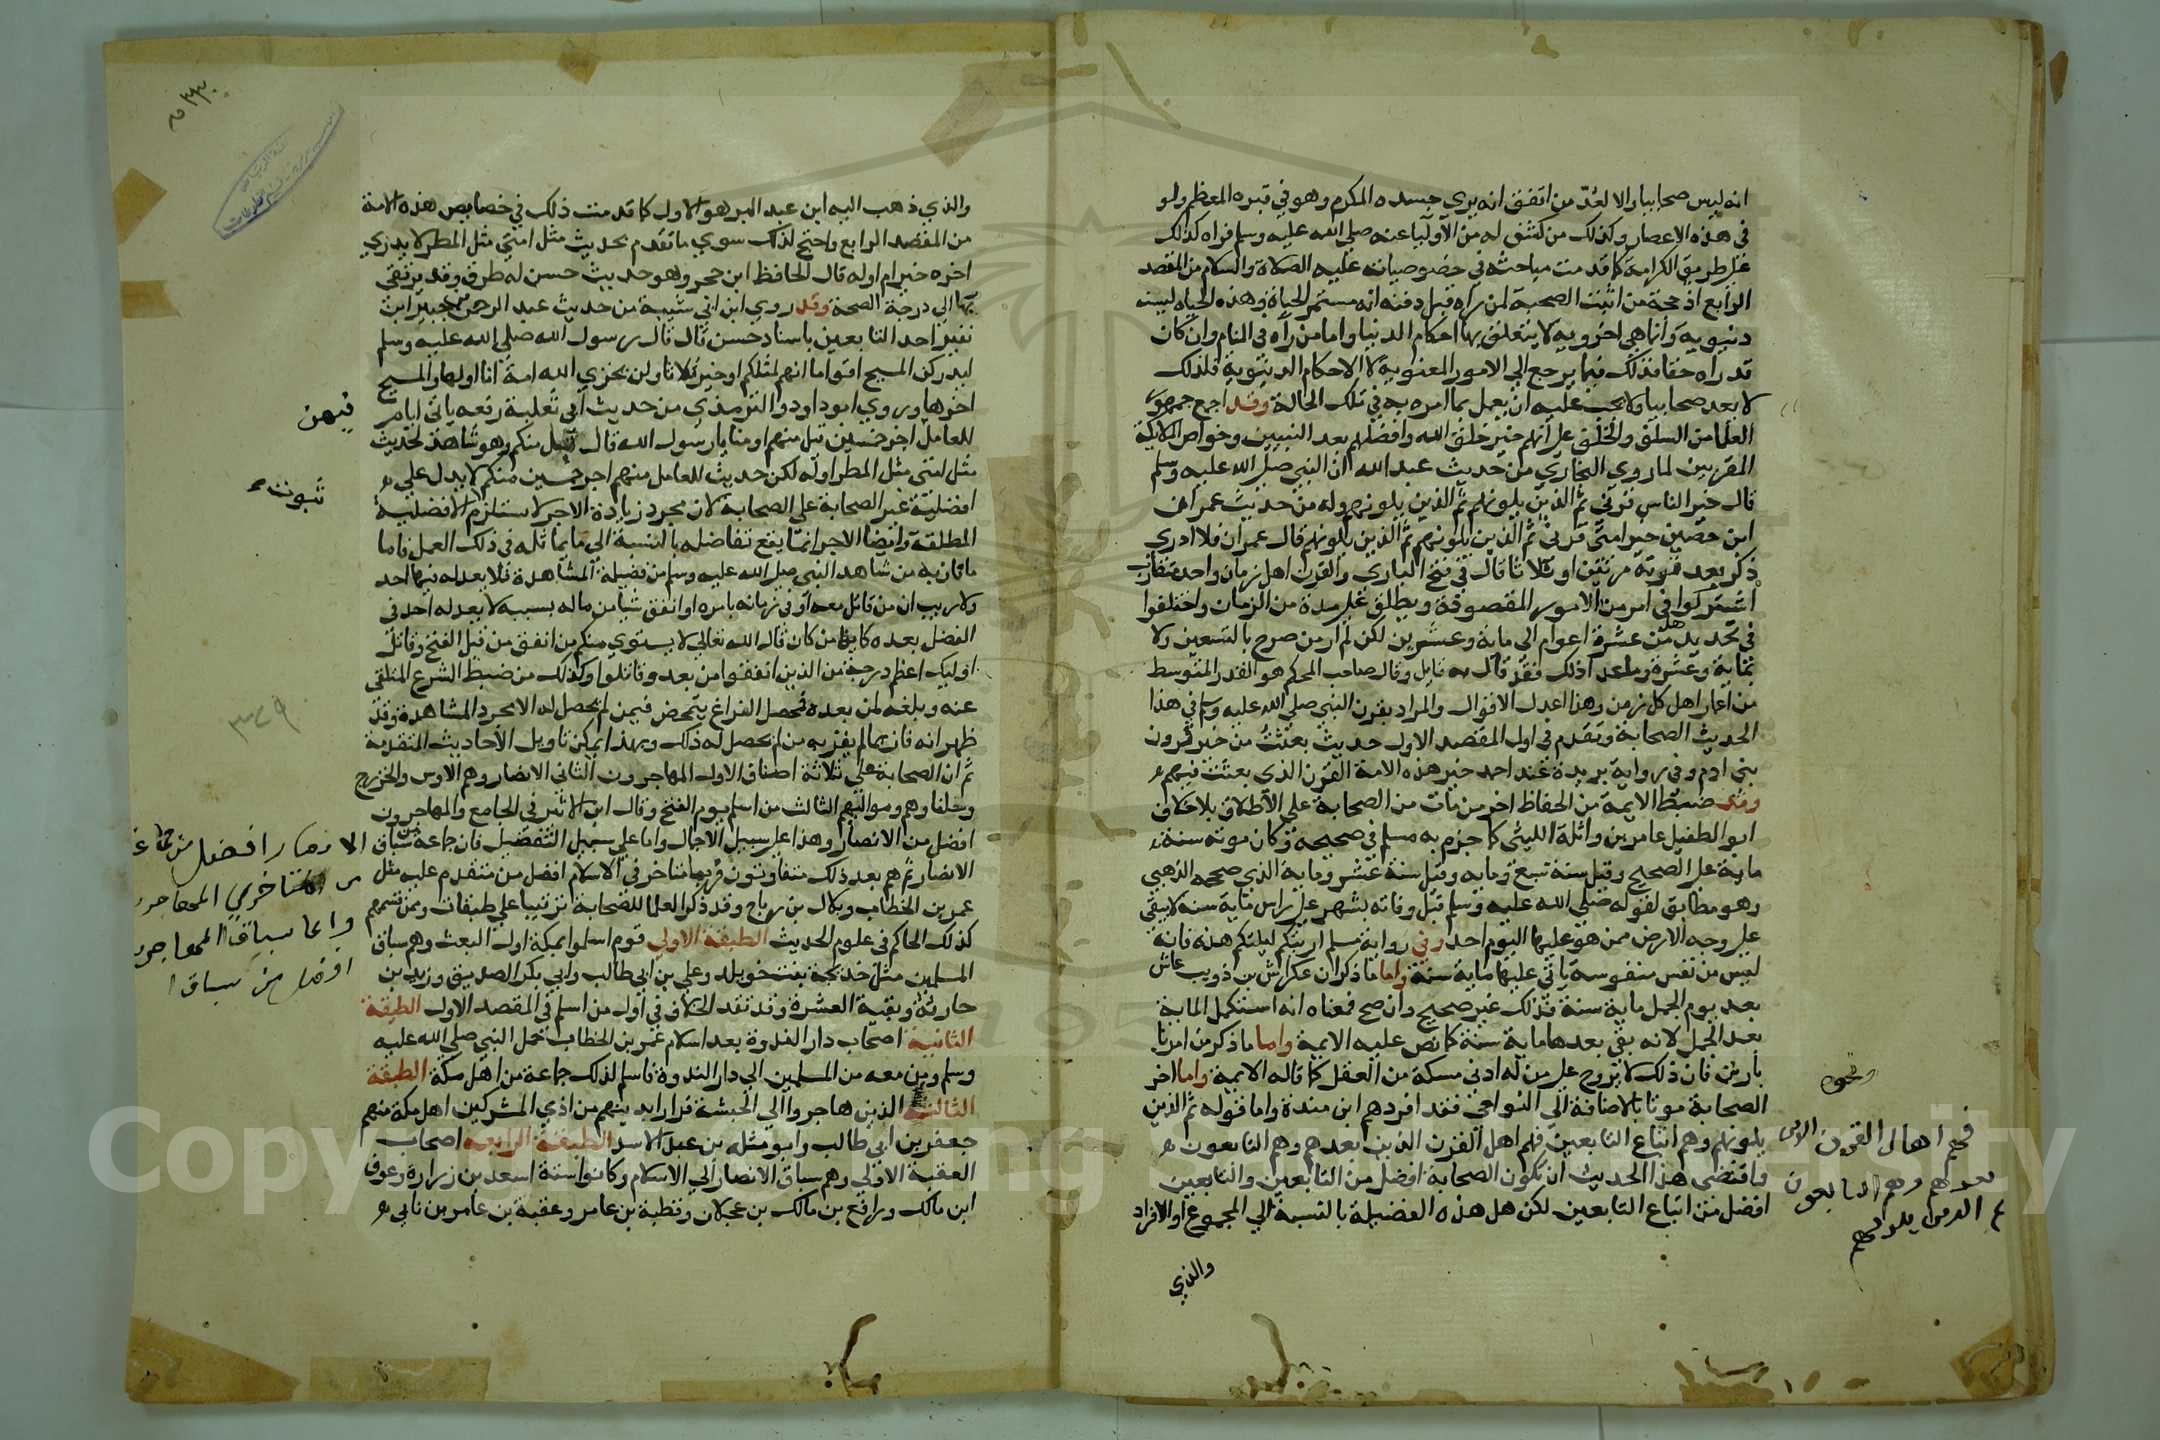 انه ليس صحابيا والا لعُدّ من اتفق انه يري جسده المكرم وهو في قبره المعظم ولو
في هذه الاعصار وكذلك من كشف له من الاوليا عنه صلي الله عليه وسلم فراه كذلك
علي طريق الكرامة كما قدمت مباحثه في خصوصياته عليه الصلاة والسلام من المقصد
الرابع اذ حجة من اثبت الصحبة لمن راه قبل دفنه انه مستمر الحياة وهذه الحياه ليست
دنيويه وانما هي اخرويه لا يتعلق بها احكام الدنيا واما من رآه في المنام وان كان
قد راه حقا فذلك فيما يرجع الي الامور المعنوية لا الاحكام الدنيوية فلذلك
لا يعد صحابيا ولا يجب عليه ان يعمل بما امره به في تلك الحالة وقد اجمع جمهور
العلما من السلف والخلف علي انهم خير خلق الله وافضلهم بعد النبيين وخواص الملايكة
المقربين لما روي البخاري من حديث عبد الله ان النبي صلي الله عليه وسلم
قال خير الناس قرني ثم الذين يلونهم ثم الذين يلونهم وله من حديث عمران
ابن حصين خير امتي قرني ثم الذين يلونهم ثم الذين يلونهم قال عمران فلا ادري
ذكر بعد قرنه مرتين او ثلاثا قال في فتح الباري والقرن اهل زمان واحد متقارب
اشتركوا في امر من الامور المقصودة ويطلق علي مدة من الزمان واختلفوا
في تحديدها من عشرة اعوام الي ماية وعشرين لكن لم ار من صرح بالتسعين ولا
بماية وعشرة وما عدا ذلك فقد قال به قايل وقال صاحب المحكم هو القدر المتوسط
من اعمار اهل كل زمن وهذا اعدل الاقوال والمراد بقرن النبي صلي الله عليه وسلم في هذا
الحديث الصحابة وتقدم في اول المقصد الاول حديث بعثتُ من خير قرون
بني ادم وفي رواية بريدة عند احمد خير هذه الامة القرن الذي بعثت فيهم
وقد ضبط الايمة من الحفاظ اخر من مات من الصحابة علي الاطلاق بلا خلاف
ابو الطفيل عامر بن واثلة الليثي كما جزم به مسلم في صحيحه وكان موته سنة
ماية علي الصحيح وقيل سنة سبع وماية وقيل سنة عشر وماية الذي صححه الذهبي
وهو مطابق لقوله صلي الله عليه وسلم قبل وفاته بشهر علي راس ماية سنة لا يبقي
علي وجه الارض ممن هو عليها اليوم احد وفي رواية مسلم ارايتكم ليلتكم هذه فانه
ليس من نفس منفوسة ياتي عليها ماية سنة واما ما ذكر ان عكراش بن ذويب عاش
بعد يوم الجمل ماية سنة فذلك غير صحيح وان صح فمعناه انه استكمل الماية
بعد الجمل لانه بقي بعدها ماية سنة كما نص عليه الايمة واما ما ذكر من امر بابا
رتن فان ذلك لا يروج علي من له ادني مسكة من العقل كما قاله الايمة واما اخر
الصحابة موتا بالاضافة الي النواحي فقد افردهم ابن مندة واما قوله ثم الذين
يلونهم وهم اتباع التابعين فهم اهل القرن الذين بعدهم وهم التابعون
واقتضي هذا الحديث ان تكون الصحابة افضل من التابعين والتابعين
افضل من اتباع التابعين لكن هل هذه الفضيلة بالنسبة الي المجموع او الافراد
والذي
فهم اهل القرن الذين
بعدهم وهم التابعون
ثم الذين يلونهم
والذي ذهب اليه ابن عبد البر هو الاول كما قدمت ذلك في خصايص هذه الامة
من المقصد الرابع واحتج لذلك سوي ما تقدم بحديث مثل امتي مثل المطر لا يدري
اخره خير ام اوله قال الحافظ ابن حجر وهو حديث حسن له طرق وقد يرتقي
بها الي درجة الصحة وقد روي ابن ابي شيبة من حديث عبد الرحمن بن جبير ابن
نفير احد التابعين باسناد حسن قال قال رسول الله صلي الله عليه وسلم
ليدركن المسيح اقواما انهم لمثلكم او خير ثلاثا ولن يخزي الله امة انا اولها والمسيح
اخرها وروي ابو داود والترمذي من حديث ابي ثعلبة رفعه ياتي ايام
للعامل اجر خمسين قيل منهم او منا يا رسول الله قال بل منكم وهو شاهد لحديث
مثل امتي مثل المطر اوله لكن حديث للعامل منهم اجر خمسين منكم لا يدل علي
افضلية غير الصحابة علي الصحابة لان مجرد زيادة الاجر لا يستلزم الافضلية
المطلقة وايضا الاجر انما يقع تفاضله بالنسبة الي ما يماثله في ذلك العمل فاما
ما فاز به من شاهد النبي صلي الله عليه وسلم من فضيلة المشاهدة فلا يعدله فيها احد
ولا ريب ان من قاتل معه او في زمانه بامره او انفق شيا من ماله بسببه لا يعدله احد في
الفضل بعده كاينا من كان قال الله تعالي لا يستوي منكم من انفق من قبل الفتح وقاتل
اوليك اعظم درجة من الذين انفقوا من بعد وقاتلوا وكذلك من ضبط الشرع المتلقي
عنه وبلغه لمن بعده فمحصل النزاع يتمحض فيمن لم يحصل له الا مجرد المشاهدة وقد
ظهر انه فاز بما لم يفز به من لم يحصل له ذلك وبهذا يمكن تاويل الاحاديث المتقدمة
ثم ان الصحابة علي ثلاثة اصناف الاول المهاجرون الثاني الانصار وهم الاوس والخزرج
وحلفاوهم ومواليهم الثالث من اسلم يوم الفتح وقال ابن الاثير في الجامع والمهاجرون
افضل من الانصار وهذا علي سبيل الاجمال واما علي سبيل التفضيل فان جماعة من سباق
الانصار ثم هم بعد ذلك متفاوتون فربما متاخر في الاسلام افضل من متقدم عليه مثل
عمر بن الخطاب وبلال بن رباح وقد ذكر العلما للصحابة ترتيبا علي طبقات وممن قسمهم
كذلك الحاكم في علوم الحديث الطبقة الاولي قوم اسلموا بمكة اول البعث وهم سباق
المسلمين مثل خديجة بنت خويلد وعلي بن ابي طالب وابي بكر الصديق وزيد بن
حارثة وبقية العشرة وقد تقدم الخلاف في اول من اسلم في المقصد الاول الطبقة
الثانية اصحاب دار الندوة بعد اسلام عمر بن الخطاب حمل النبي صلي الله عليه
وسلم ومن معه من المسلمين الي دار الندوة فاسلم لذلك جماعة من اهل مكة الطبقة
الثالثة الذين هاجروا الي الحبشة فرارا بدينهم من اذي المشركين اهل مكة منهم
جعفر بن ابي طالب وابو سلمة بن عبد الاسد الطبقة الرابعة اصحاب
العقبة الاولي وهم سباق الانصار الي الاسلام وكانوا ستة اسعد بن زرارة وعوف
ابن مالك ورافع بن مالك بن عجلان وقطبة بن عامر وعقبة بن عامر بن نابي
فيهن
ثبوت
الانصار افضل من
متاخري المهاجرين
واما سباق المهاجرين
افضل من سباق
٣٤٩
Copy ng S ersity